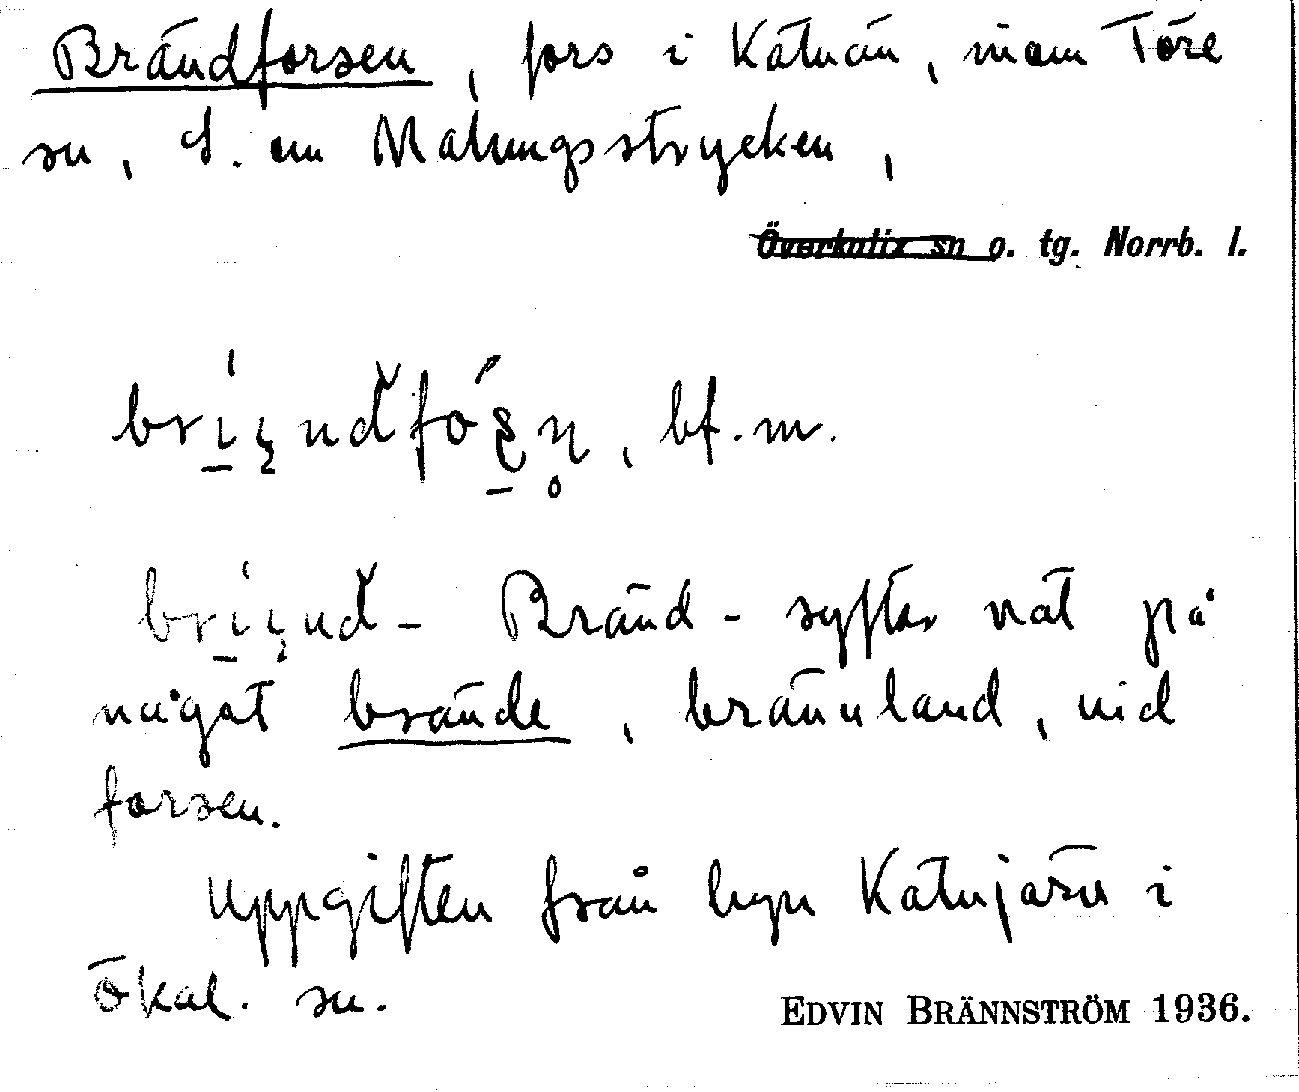 Brändforsen, fors i Kätuän, inom Töre
sn, S. om Malungsstrycken,
Överkalix sn o. tg. Norrb. l.
bf. m.
Bränd- syftar nåt på
något brände, brännland, vid
forsen.
Uppgiften från byn Kätujärv i
Ökal. sn.
EDVIN BRÄNNSTRÖM 1936.